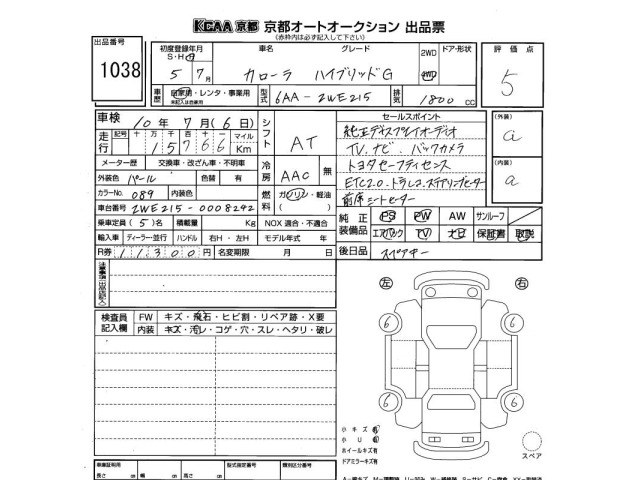 KCAA 京都 京都オートオークション 出品票
(赤枠内は必ず記入して下さい)
出品番号
1038
初度登録年月
S・H・R
5年7月
車名
カローラ
グレード
ハイブリッドG
2WD
4WD
ドア・形状
評価点
5
車歴
自家用・レンタ・事業用
未記入は自家用
型式
6AA-ZWE215
排気
1800 CC
車検
10年 7月(6日)
シフト
AT
セールスポイント
純正ディスプレイオーディオ
TV、ナビ、バックカメラ
トヨタセーフティセンス
ETC2.0、ドラレコ、ステアリングヒーター
前席シートヒーター
(外装)
a
(内装)
a
走行
記号 十 万 千 百 十 一 マイル
1 5 7 6 6 Km
メーター歴
交換車・改ざん車・不明車
冷房
AAC
無
外装色
パール
色替
有
カラーNo.
089
内装色
燃料
ガソリン・軽油
車台番号
ZWE215-0008292
乗車定員
(5)名
積載量
Kg
NOX 適合・不適合
輸入車
ディーラー・並行
ハンドル
右H・左H
モデル年式
年
R券
11300円
名変期限
月 日
純正装備品
PS PW AW サンルーフ
エアバック TV ナビ 保証書 取説
後日品
スペアキー
注意事項(出品店記入)
検査員記入欄
FW キズ・飛石・ヒビ割・リペア跡・X要
内装 キズ・汚レ・コゲ・穴・スレ・ヘタリ・破レ
左
右
6
6
6
6
小キズ有
小U有
ホイールキズ有
ドアミラーキズ有
スペア
車庫証明用
長さ cm
幅 cm
高さ cm
型式指定番号
類別区分番号